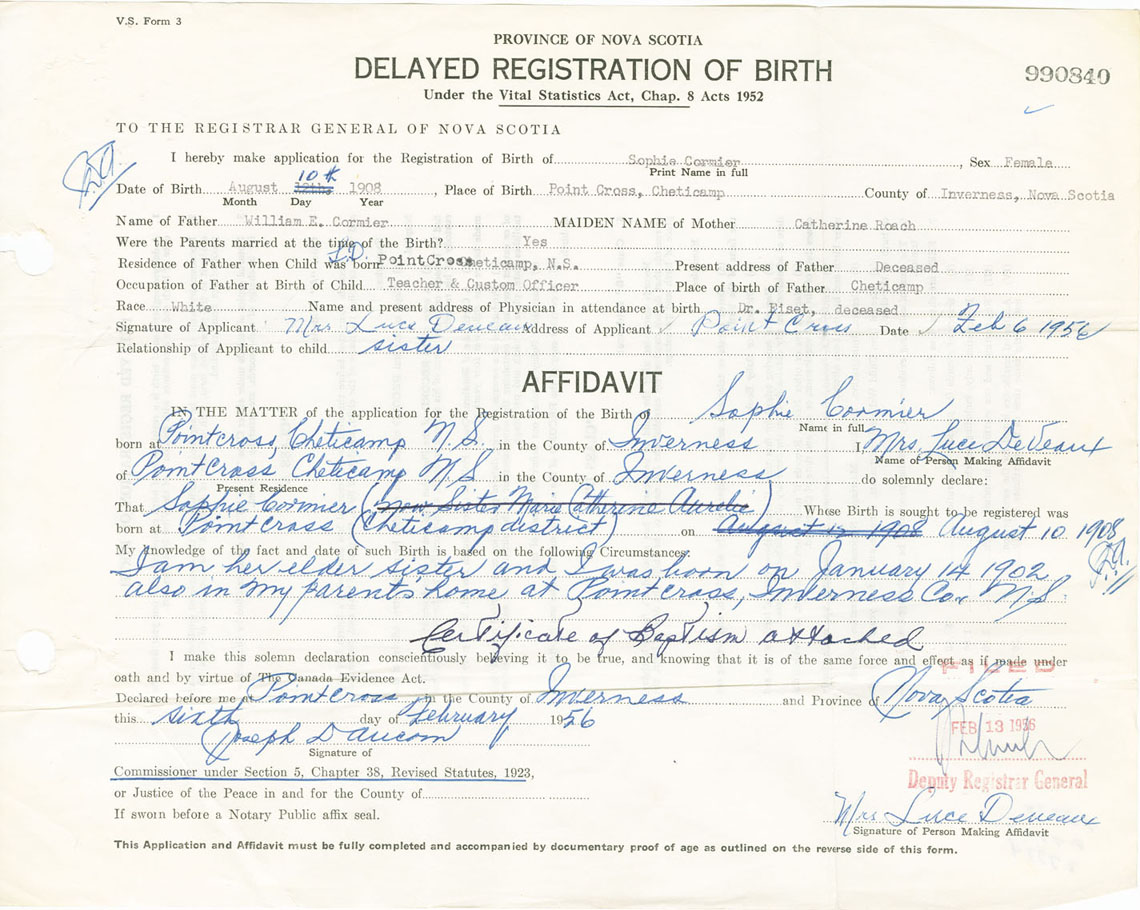 V.S. Form 3
PROVINCE OF NOVA SCOTIA
DELAYED REGISTRATION OF BIRTH
990840
Under the Vital Statistics Act, Chap. 8 Acts 1952
TO THE REGISTRAR GENERAL OF NOVA SCOTIA
I hereby make application for the Registration of Birth of Sophie Cormier, Sex Female
Print Name in full
10th
Date of Birth August 12th 1908, Place of Birth Point Cross, Cheticamp County of Inverness, Nova Scotia
Month Day Year
Name of Father William E. Cormier MAIDEN NAME of Mother Catherine Roach
Were the Parents married at the time of the Birth? Yes
Residence of Father when Child was born Point Cross Cheticamp, N.S. Present address of Father Deceased
Occupation of Father at Birth of Child Teacher & Custom Officer Place of birth of Father Cheticamp
Race White Name and present address of Physician in attendance at birth Dr. Fiset, deceased
Signature of Applicant Mrs. Luce Deveaux Address of Applicant Point Cross Date Feb 6 1956
Relationship of Applicant to child sister
AFFIDAVIT
IN THE MATTER of the application for the Registration of the Birth of Sophie Cormier
Name in full
born at Pointcross, Cheticamp N.S. in the County of Inverness I Mrs. Luce DeVeaux
Name of Person Making Affidavit
of Pointcross, Cheticamp N.S in the County of Inverness do solemnly declare:
Present Residence
That Sophie Cormier (now Sister Marie Catherine Aurelie) Whose Birth is sought to be registered was
born at Pointcross (Cheticamp district) on August 12 1908 August 10 1908
My knowledge of the fact and date of such Birth is based on the following Circumstances:
I am her elder sister and I was born on January 14, 902
also in my parent's home at Pointcross, Inverness Co. N.S
Certificate of Baptism attached
I make this solemn declaration conscientiously believing it to be true, and knowing that it is of the same force and effect as if made under
oath and by virtue of The Canada Evidence Act.
FILED
Declared before me at Pointcross in the County of Inverness and Province of Nova Scotia
this sixth day of February 1956
FEB 13 1956
Joseph D Aucoin
Signature of
Commissioner under Section 5, Chapter 38, Revised Statutes, 1923,
Deputy Registrar General
or Justice of the Peace in and for the County of
If sworn before a Notary Public affix seal.
Mrs Luce Deveaux
Signature of Person Making Affidavit
This Application and Affidavit must be fully completed and accompanied by documentary proof of age as outlined on the reverse side of this form.